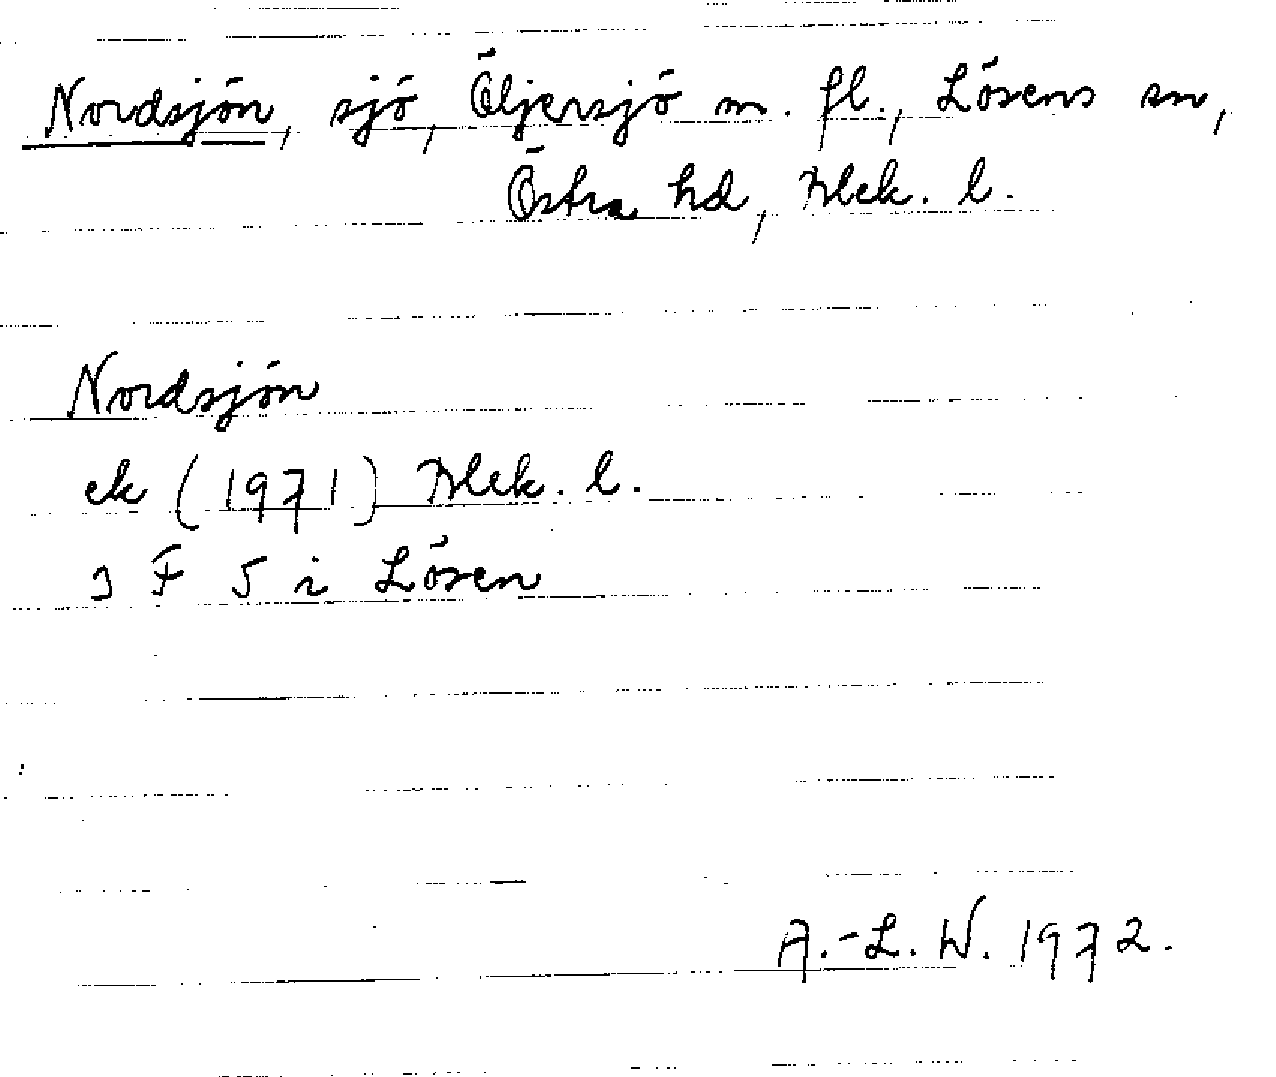 Nordsjön, sjö, Öljersjö m. fl., Lösens sn,
Östra hd, Blek. l.
Nordsjön
ek (1971) Blek. l.
3 F 5 i Lösen
A.-L. W. 1972.